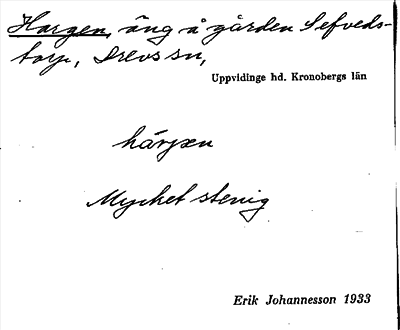 Hargen, äng å gården Sefveds-
torp, Drevs sn,
Uppvidinge hd. Kronobergs län
hárjen
Mycket stenig
Erik Johannesson 1933